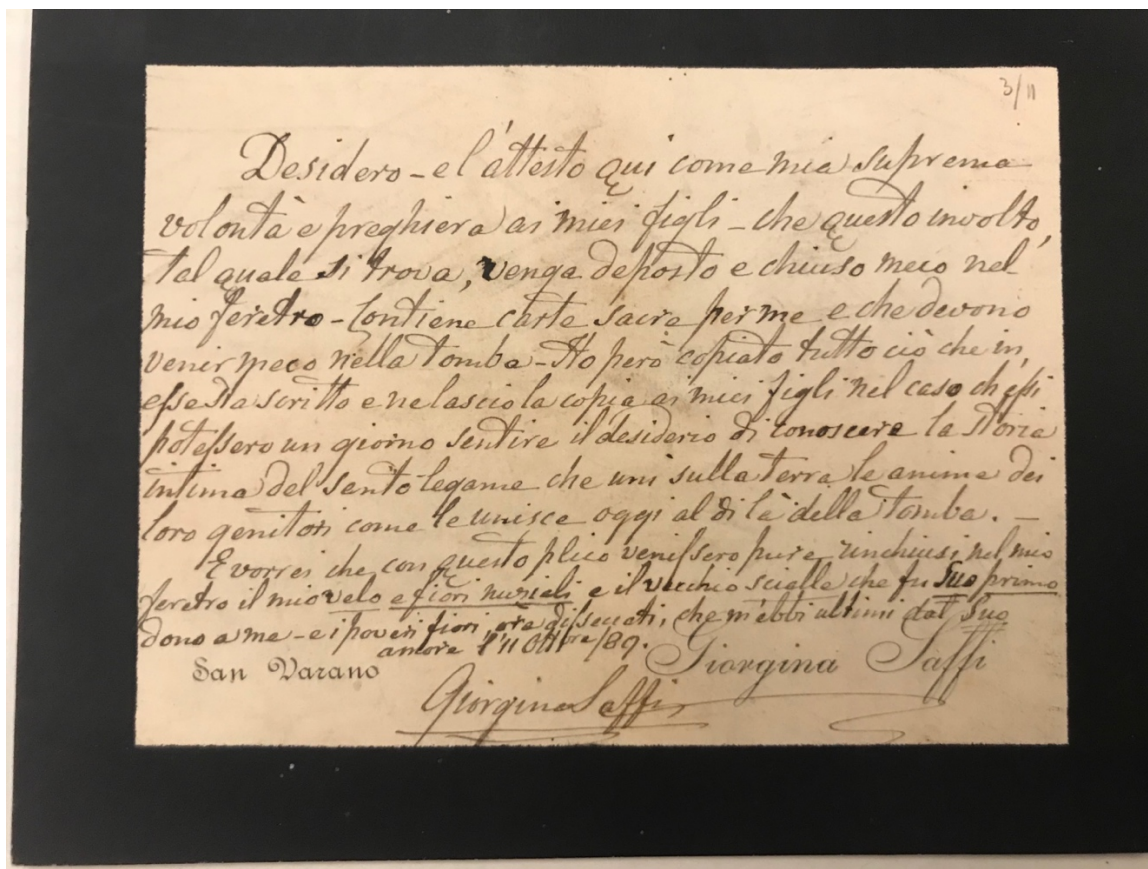 3/11
Desidero - e l'attesto qui come mia suprema
volontà e preghiera ai miei figli - che questo involto,
tal quale si trova, venga deposto e chiuso meco nel
mio feretro - Contiene carte sacre per me e che devono
venir meco nella tomba - Ho però copiato tutto ciò che in
esse sta scritto e ne lascio la copia ai miei figli nel caso ch'essi
potessero un giorno sentire il desiderio di conoscere la storia
intima del santo legame che unì sulla terra le anime dei
loro genitori come le unisce oggi al di là della tomba. -
E vorrei che con questo plico venissero pure rinchiusi nel mio
feretro il mio velo e fiori nuziali e il vecchio scialle che fu Suo primo
dono a me - e i poveri fiori, ora disseccati, che m'ebbi ultimi dal Suo
amore l'11 Ottbre/89.
San Varano Giorgina Saffi
Giorgina Saffi